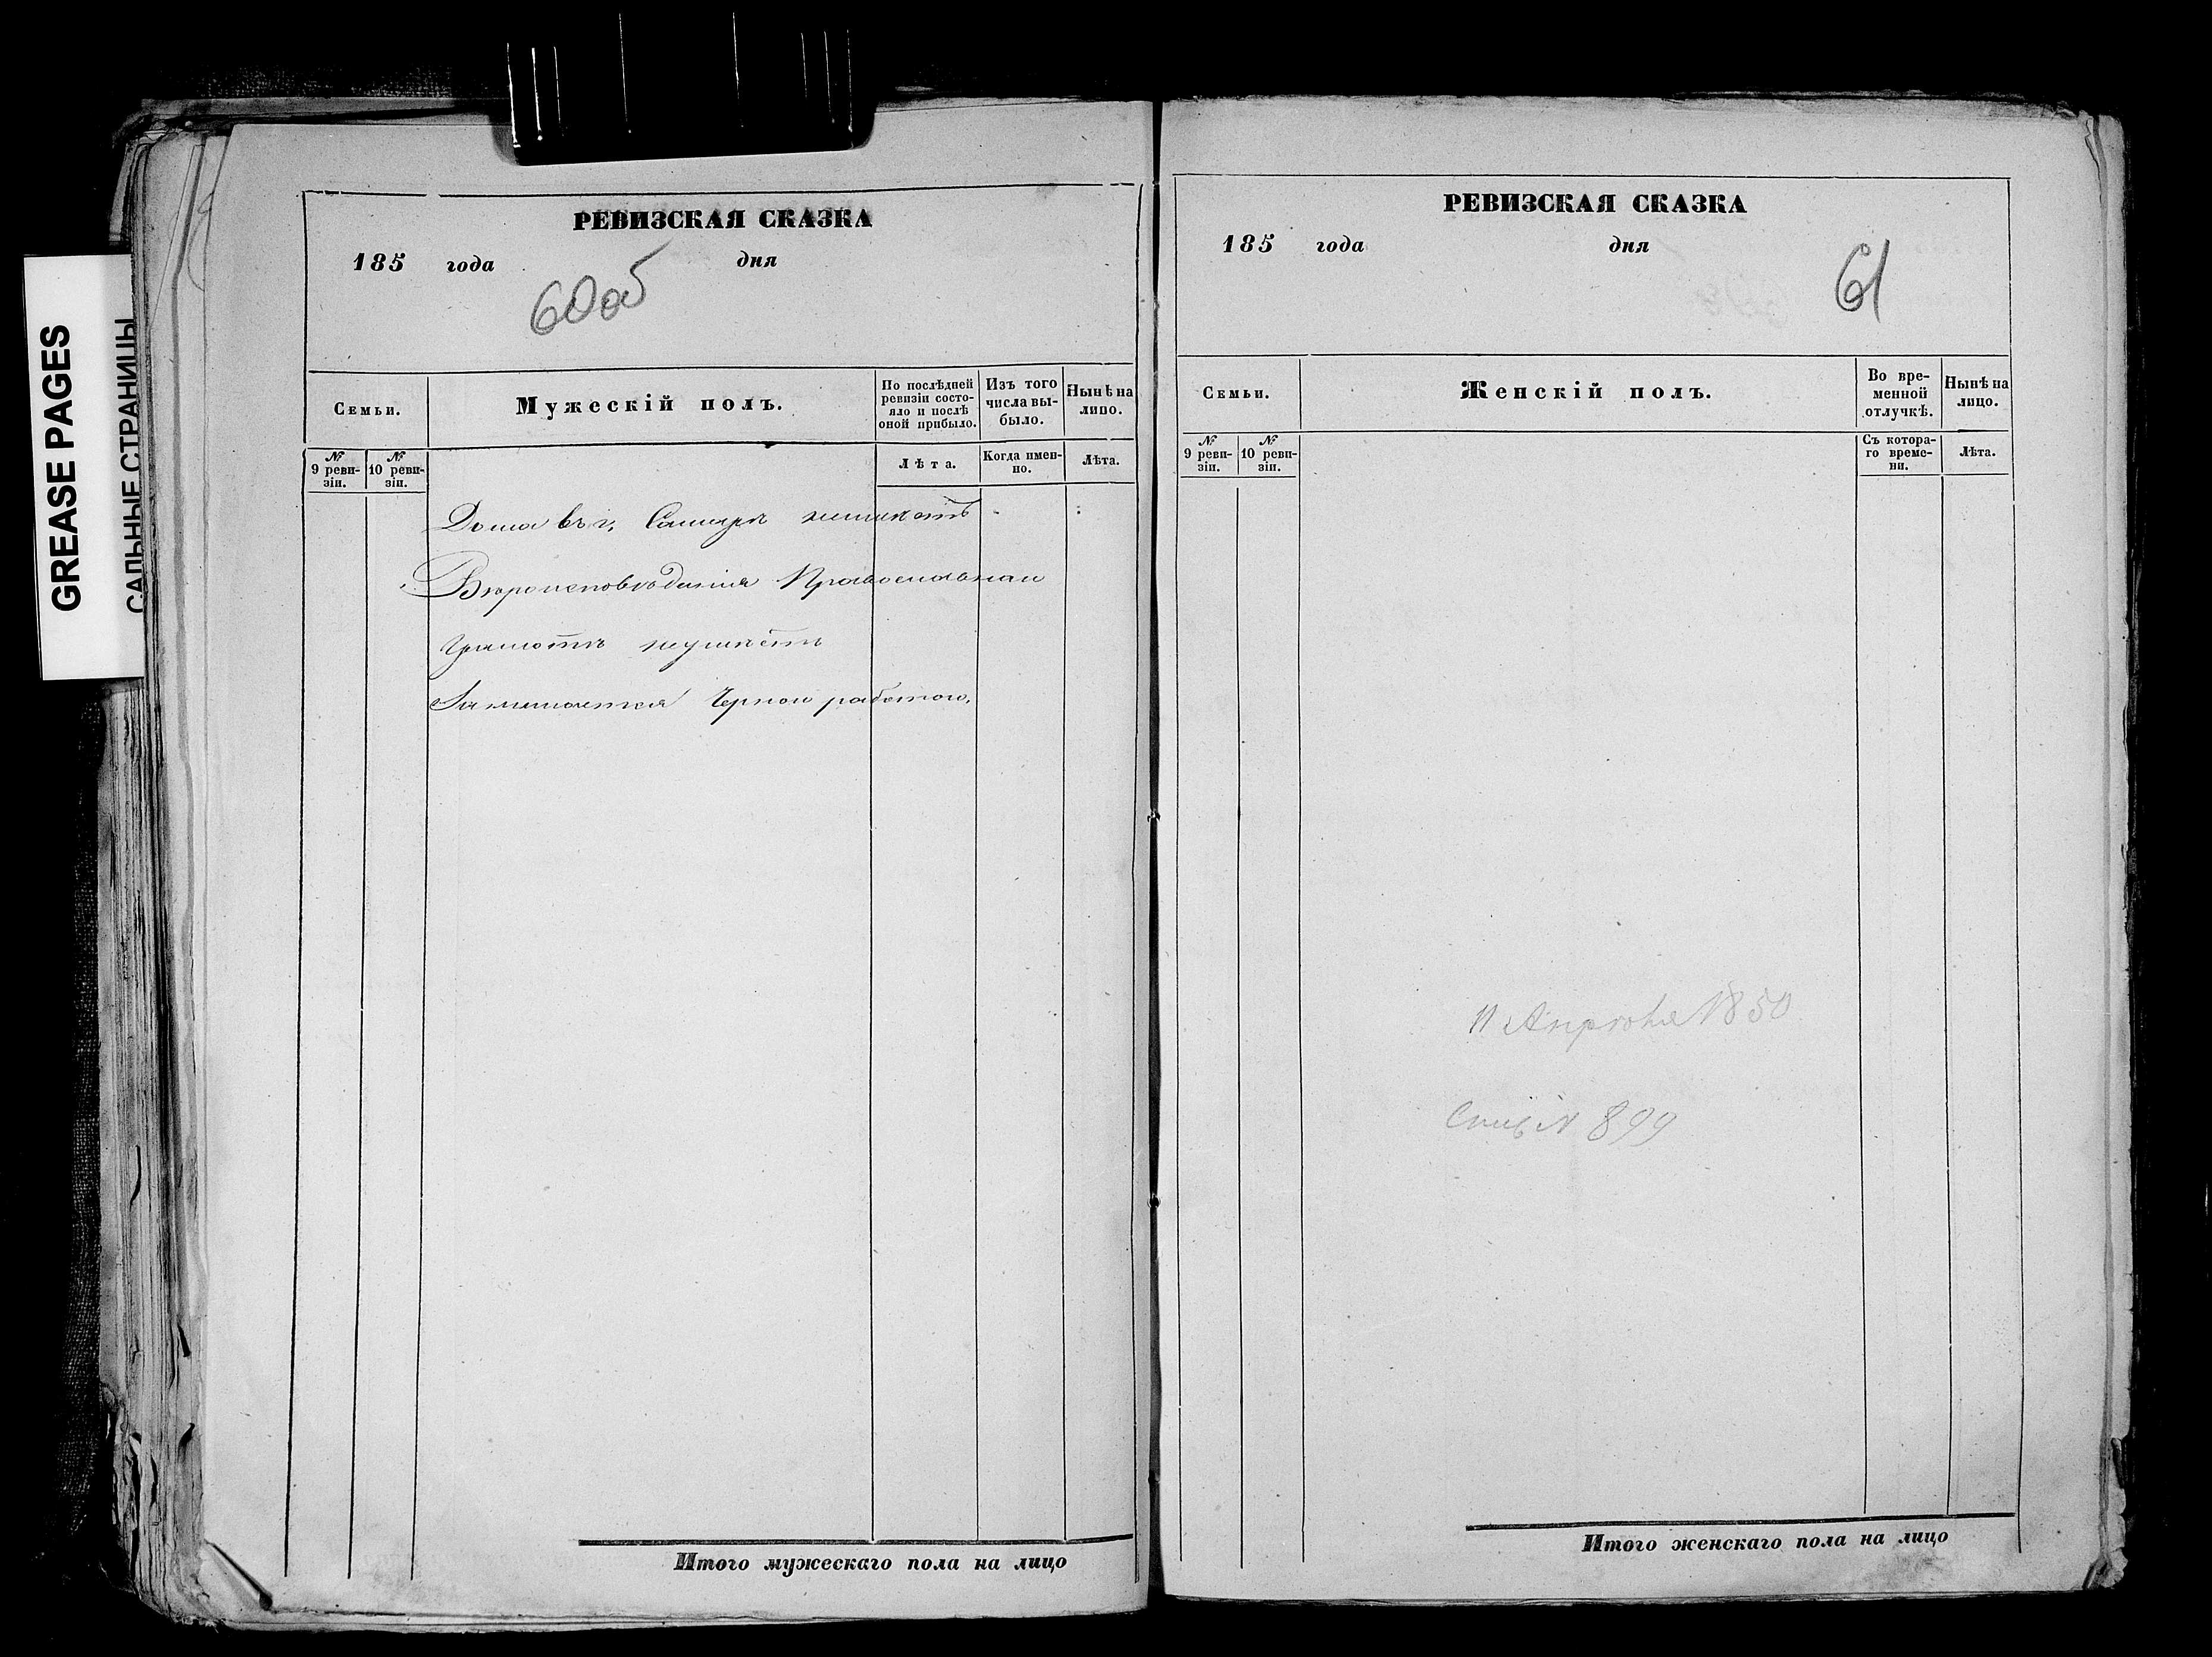 GREASE PAGES
САЛЬНЫЕ СТРАНИЦЫ
РЕВИЗСКАЯ СКАЗКА
185 года дня
60об
Семьи.
Мужескій полъ.
По послѣдней ревизіи состояло и послѣ оной прибыло.
Изъ того числа выбыло.
Нынѣ на лицо.
№ 9 ревизіи.
№ 10 ревизіи.
Лѣта.
Когда именно.
Лѣта.
Дома въ г. Самарѣ неимѣетъ
Вѣроисповѣданія Православнаи
Грамотѣ неумѣетъ
Занимается Черной работой,
Итого мужескаго пола на лицо
РЕВИЗСКАЯ СКАЗКА
185 года дня
61
Семьи.
Женскій полъ.
Во временной отлучкѣ.
Нынѣ на лицо.
№ 9 ревизіи.
№ 10 ревизіи.
Съ котораго времени.
Лѣта.
11 Апрѣля 1850
№ 899
Итого женскаго пола на лицо